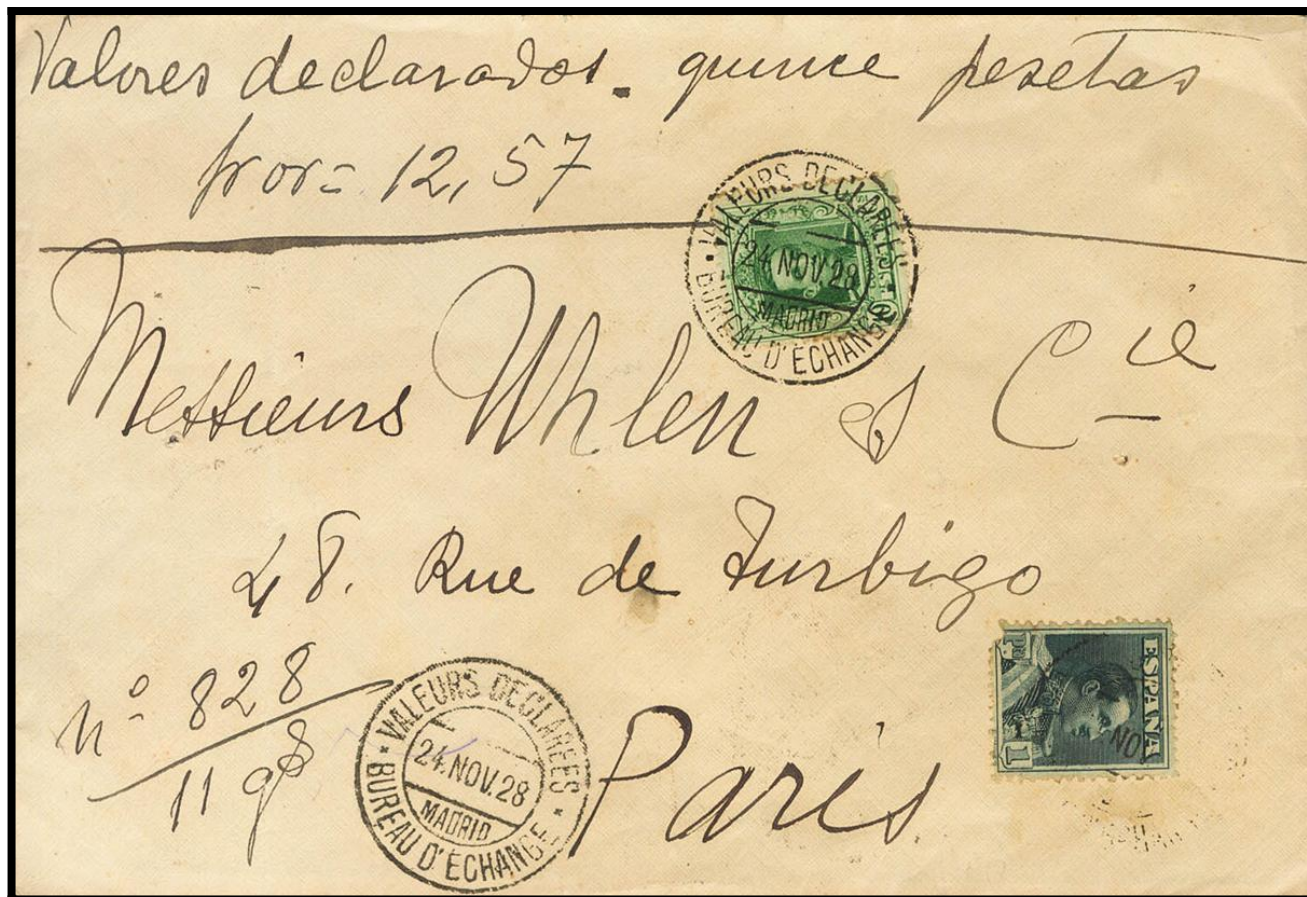 Valores declarados. quince pesetas
fr or= 12,57
VALEURS DECLAREES
24 NOV. 28
MADRID
BUREAU D'ÉCHANGE
Messieurs Uhlen & Cie
48. Rue de Turbigo
ESPAÑA
1
NO
nº 828
11 gs
VALEURS DECLAREES
24. NOV. 28
MADRID
BUREAU D'ÉCHANGE
Paris